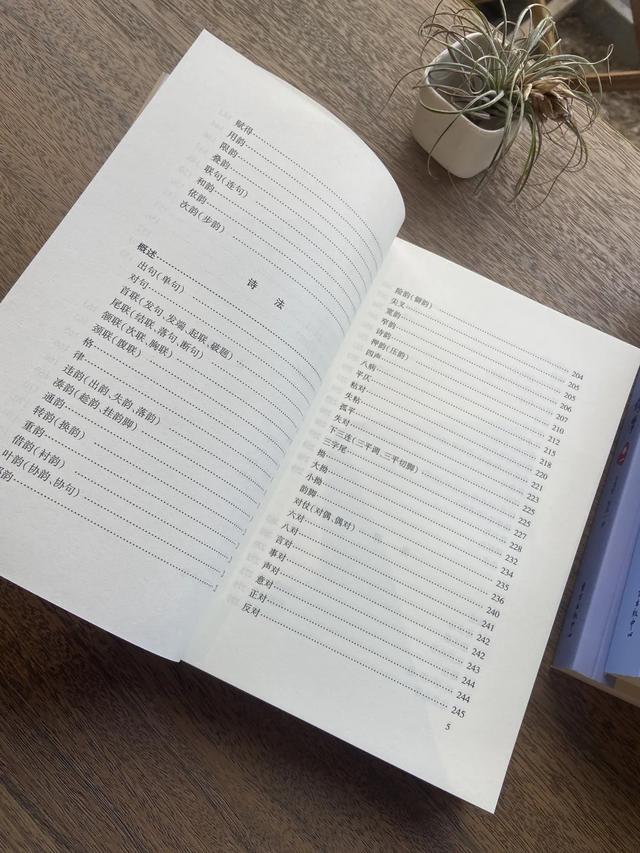 赋得
用韵
限韵
叠韵
联句(连句)
和韵
依韵
次韵(步韵)
诗法
概述
出句(单句)
对句
首联(发句、发端、起联、破题)
尾联(结联、落句、断句)
颔联(次联、胸联)
颈联(腹联)
格
律
违韵(出韵、失韵、落韵)
凑韵(趁韵、挂韵脚)
通韵
转韵(换韵)
重韵
借韵(衬韵)
叶韵(协韵、协句)
险韵(僻韵) 204
尖叉 205
宽韵 205
窄韵 206
诗韵 207
押韵(压韵) 210
四声 212
八病 215
平仄 218
粘对 220
失粘 221
孤平 223
失对 225
下三连(三平调、三平切脚) 225
三字尾 227
拗 228
大拗 232
小拗 234
韵脚 235
对仗(对偶、偶对) 236
六对 240
八对 241
言对 242
事对 242
声对 243
意对 244
正对 244
反对 245
5